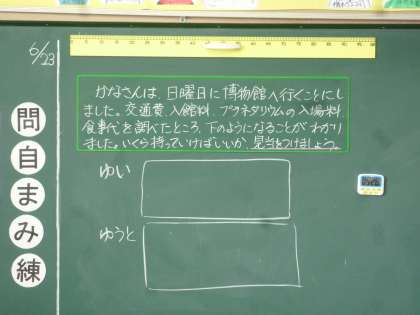 6/23
かなさんは、日曜日に博物館へ行くことにし
ました。交通費、入館料、プラネタリウムの入場料、
食事代を調べたところ、下のようになることがわかり
ました。いくら持っていけばいいか、見当をつけましょう。
問
自
ま
み
練
ゆい
ゆうと